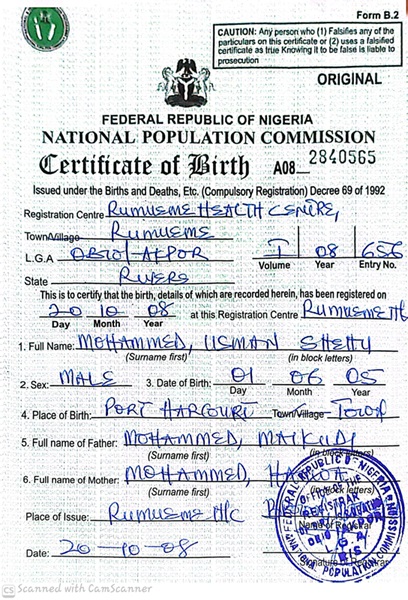 Form B.2
CAUTION: Any person who (1) Falsifies any of the
particulars on this certificate or (2) uses a falsified
certificate as true Knowing it to be false is liable to
prosecution
ORIGINAL
FEDERAL REPUBLIC OF NIGERIA
NATIONAL POPULATION COMMISSION
Certificate of Birth A08 2840565
Issued under the Births and Deaths, Etc. (Compulsory Registration) Decree 69 of 1992
Registration Centre RUMUEME HEALTH CENTRE,
Town/Village RUMUEME
L.G.A OBIO/-AKPOR I 08 656
Volume Year Entry No.
State RIVERS
This is to certify that the birth, details of which are recorded herein, has been registered on
20 10 08 at this Registration Centre RUMUEME HC
Day Month Year
1. Full Name: MOHAMMED, USMAN SHEHU
(Surname first) (in block letters)
2. Sex: MALE 3. Date of Birth: 01 06 05
Day Month Year
4. Place of Birth: PORT HARCOURT Town/Village TOWN
5. Full name of Father: MOHAMMED, MAIKUDI
(Surname first) (in block letters)
6. Full name of Mother: MOHAMMED,
(Surname first) (in block letters)
Place of Issue: RUMUEME H/C
Name of Registrar
Date: 20-10-08
Signature of Registrar
FEDERAL REPUBLIC OF NIGERIA
OFFICE OF THE
REGISTRAR
OBIO
L.G.A
NATIONAL POPULATION COMMISSION
CS Scanned with CamScanner